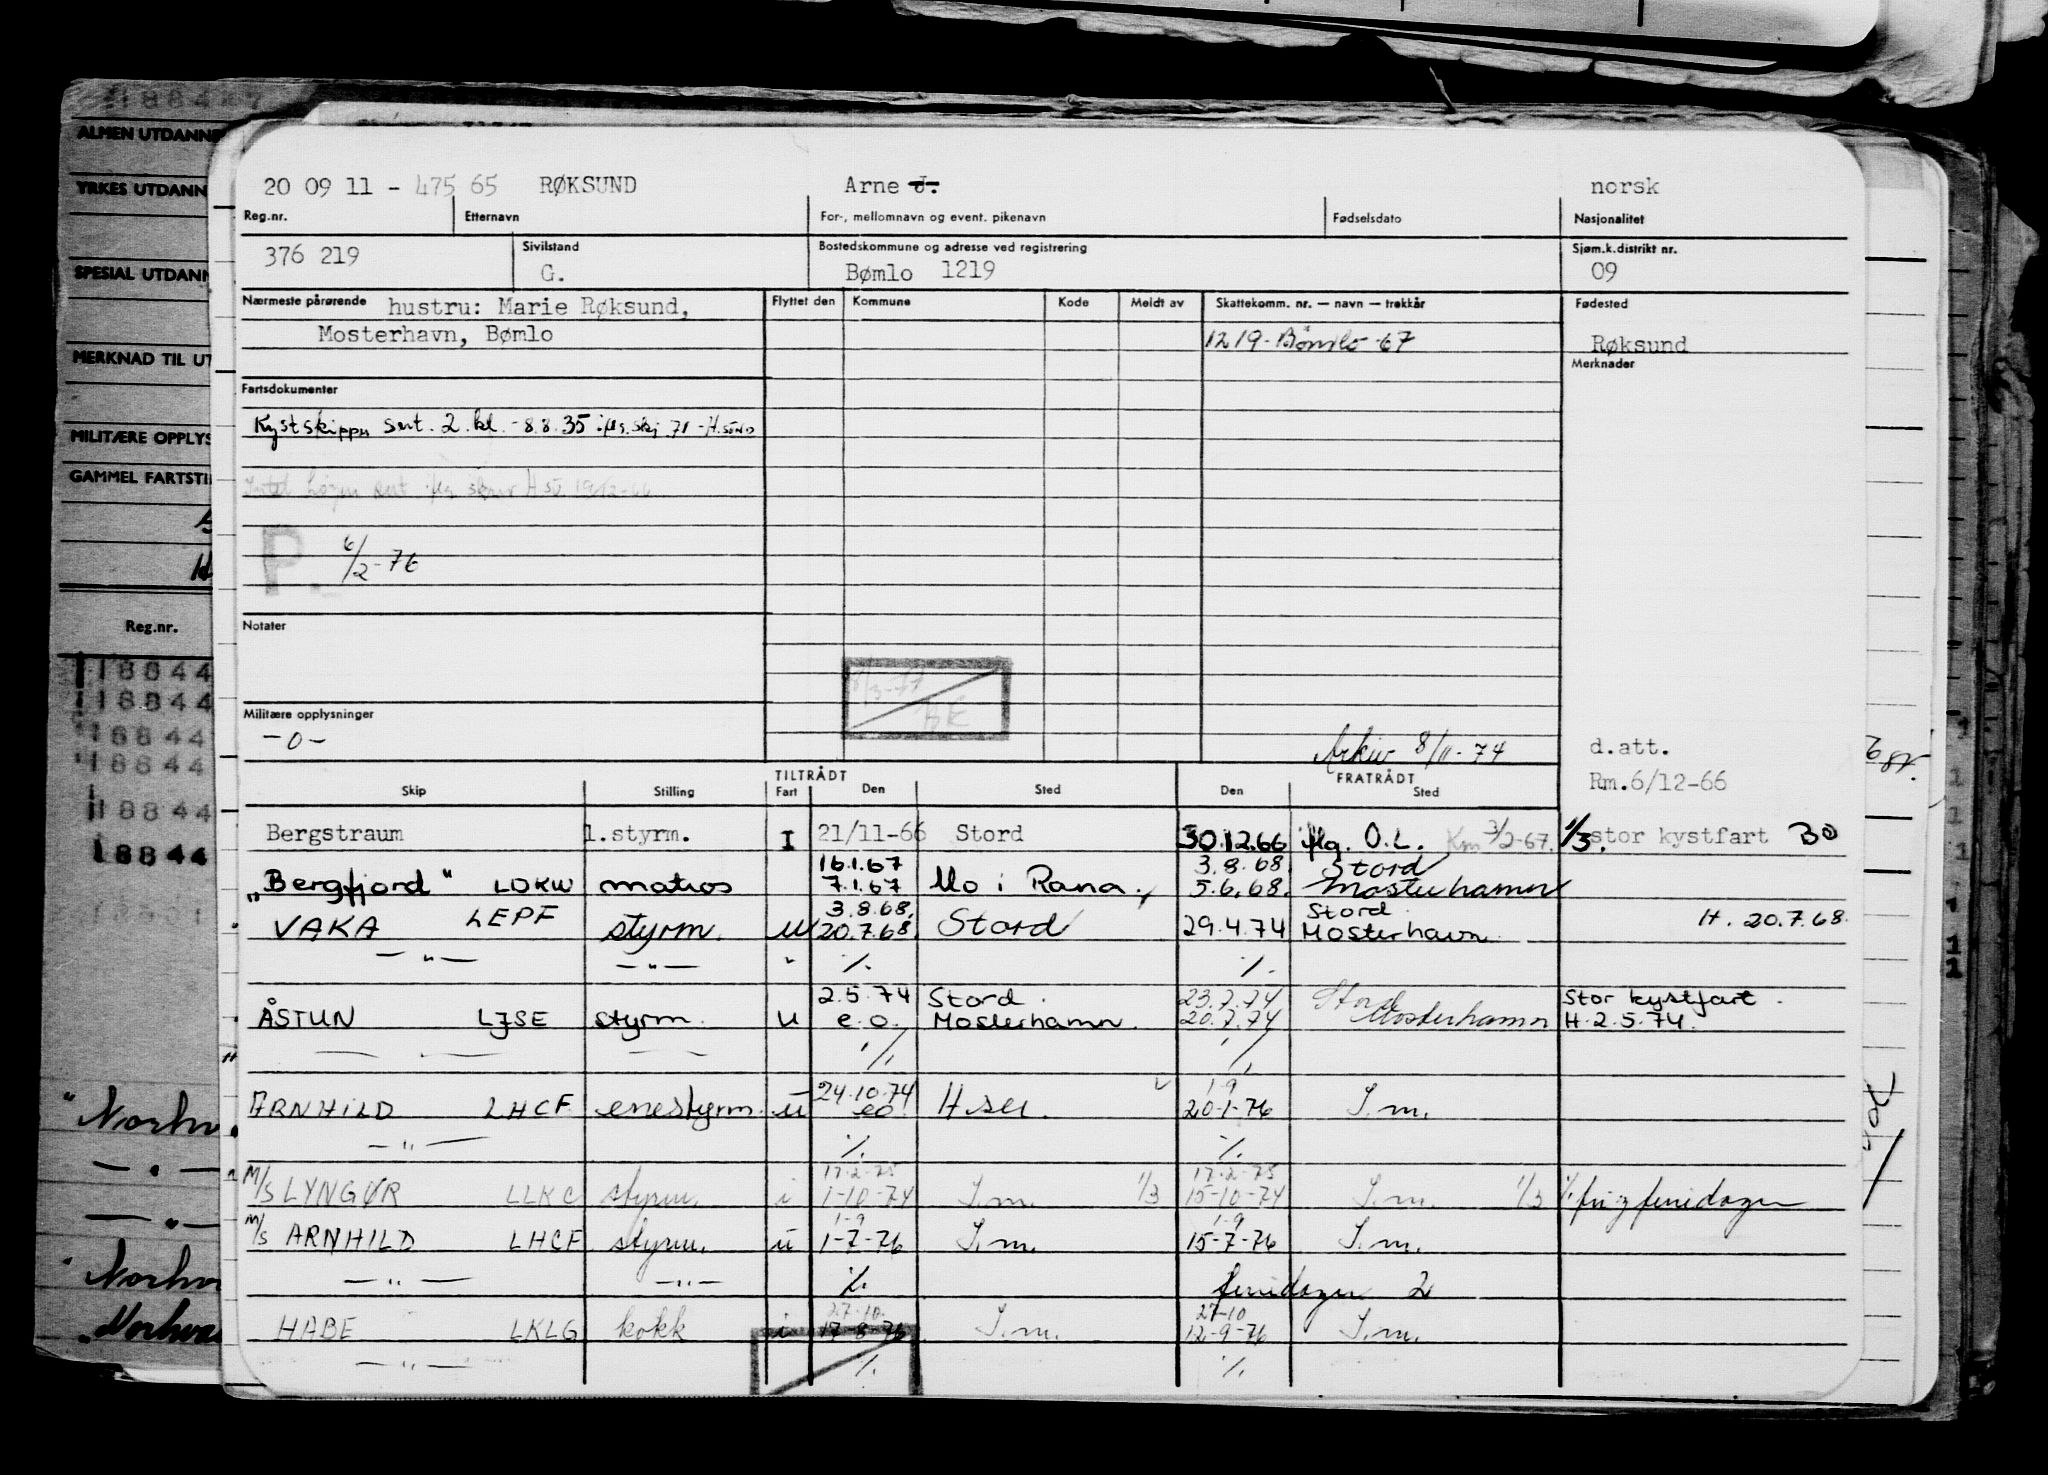 188447
ALMEN UTDANNE
YRKES UTDANN
SPESIAL UTDANN
MERKNAD TIL UT
MILITÆRE OPPLYS
GAMMEL FARTSTI
Reg.nr.
18844
18844
18844
18844
18844
18844
20 09 11 - 475 65 RØKSUND Arne J. norsk
Reg.nr. Etternavn For-, mellomnavn og event. pikenavn Fødselsdato Nasjonalitet
376 219 Sivilstand Bostedskommune og adresse ved registrering Sjøm.k.distrikt nr.
G. Bømlo 1219 09
Nærmeste pårørende hustru: Marie Røksund, Flyttet den Kommune Kode Meldt av Skattekomm. nr. — navn — trekkår Fødested
Mosterhavn, Bømlo 1219-Bømlo-67 Røksund
Merknader
Fartsdokumenter
Kystskipper sert. 2. kl. - 8.8.35 iflg. skj 71 - H.sund
P. 6/2-76
Notater
8/3-77
Militære opplysninger
-0-
Arkiv 8/11-74 d.att.
Rm.6/12-66
TILTRÅDT FRATRÅDT
Skip Stilling Fart Den Sted Den Sted
Bergstraum 1.styrm. I 21/11-66 Stord 30.12.66 iflg. O.L. Km 3/2-67. 1/3. stor kystfart BO
16.1.67 3.8.68 Stord
"Bergfjord" LDKW matros 7.1.67 Mo i Rana. 5.6.68. Mosterhamn
3.8.68. Stord
VAKA LEPF styrm. u 20.7.68. Stord 29.4.74 Mosterhavn H. 20.7.68.
— " — — " — " %. %.
2.5.74 Stord. 23.7.74 Stord Stor kystfart.
ÅSTUN LJSE styrm. u e.o. Mosterhamn. 20.7.74 Mosterhamn H.2.5.74.
%. %.
24.10.74 1-9
ARNHILD LHCF enestyrm. u eo. H.sei. 20-1-76 S.m.
— " — %. %.
17-2-75 17-2-75
M/S LYNGØR LLKC styrm. i 1-10-74 S.m. 1/3 15-10-74 S.m. 1/3 %. fri g feriedager
1-9 1-9
M/S ARNHILD LHCF styrm. u 1-7-76 S.m. 15-7-76 S.m.
— " — — " — %. feriedager 2
27-10. 27-10
HABE LKLG kokk i 17-8-76 S.m. 12-9-76 S.m.
— " — %. %.